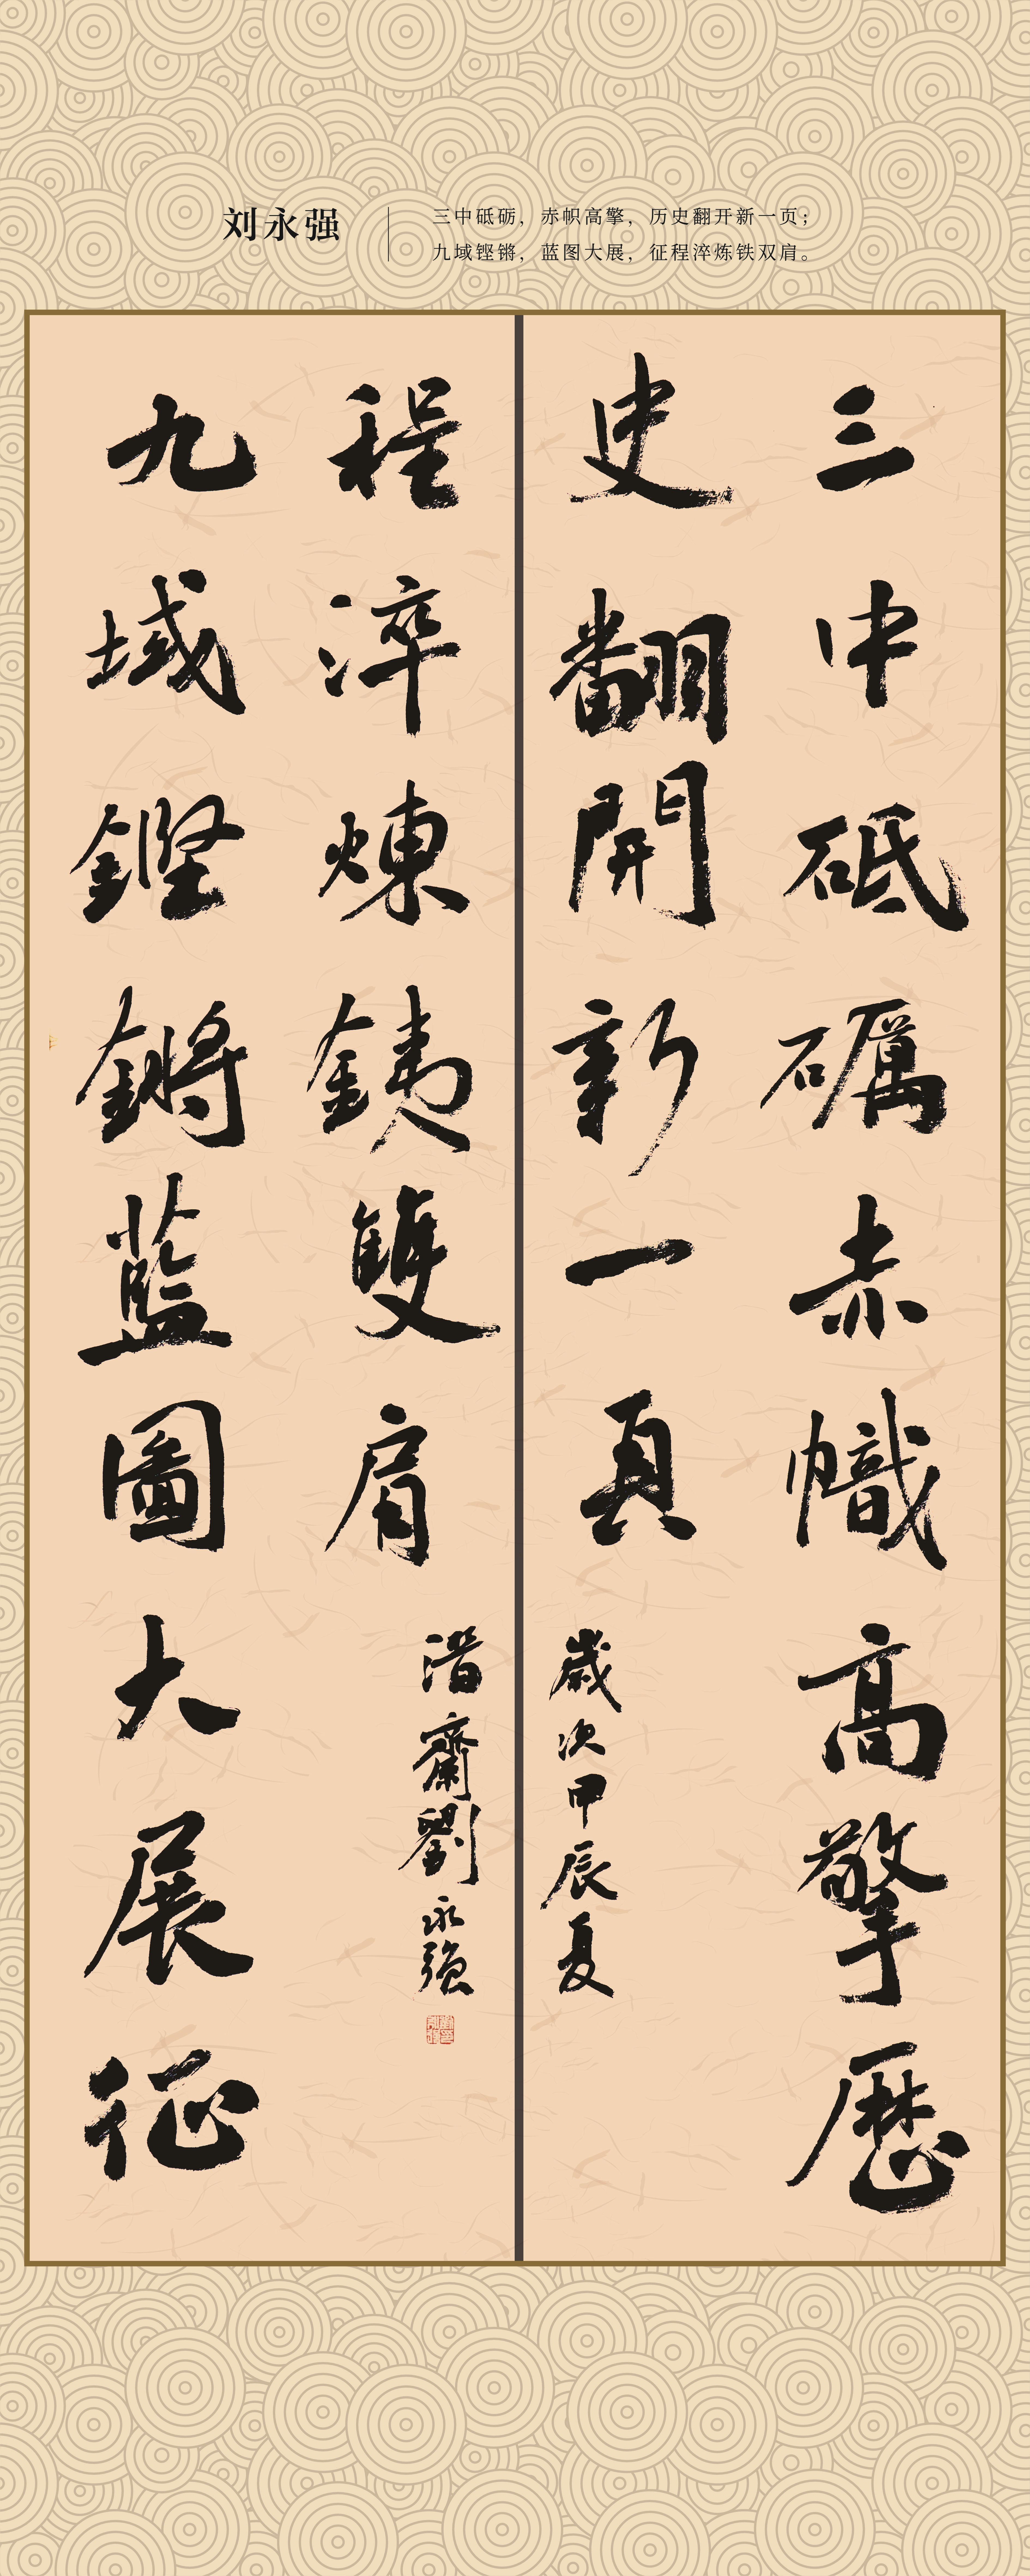 刘永强
三中砥砺，赤帜高擎，历史翻开新一页；
九域铿锵，蓝图大展，征程淬炼铁双肩。
三中砥礪赤幟高擎歷
史翻開新一頁
歲次甲辰夏
九域鏗鏘藍圖大展征
程淬煉鐵雙肩
齋劉永強